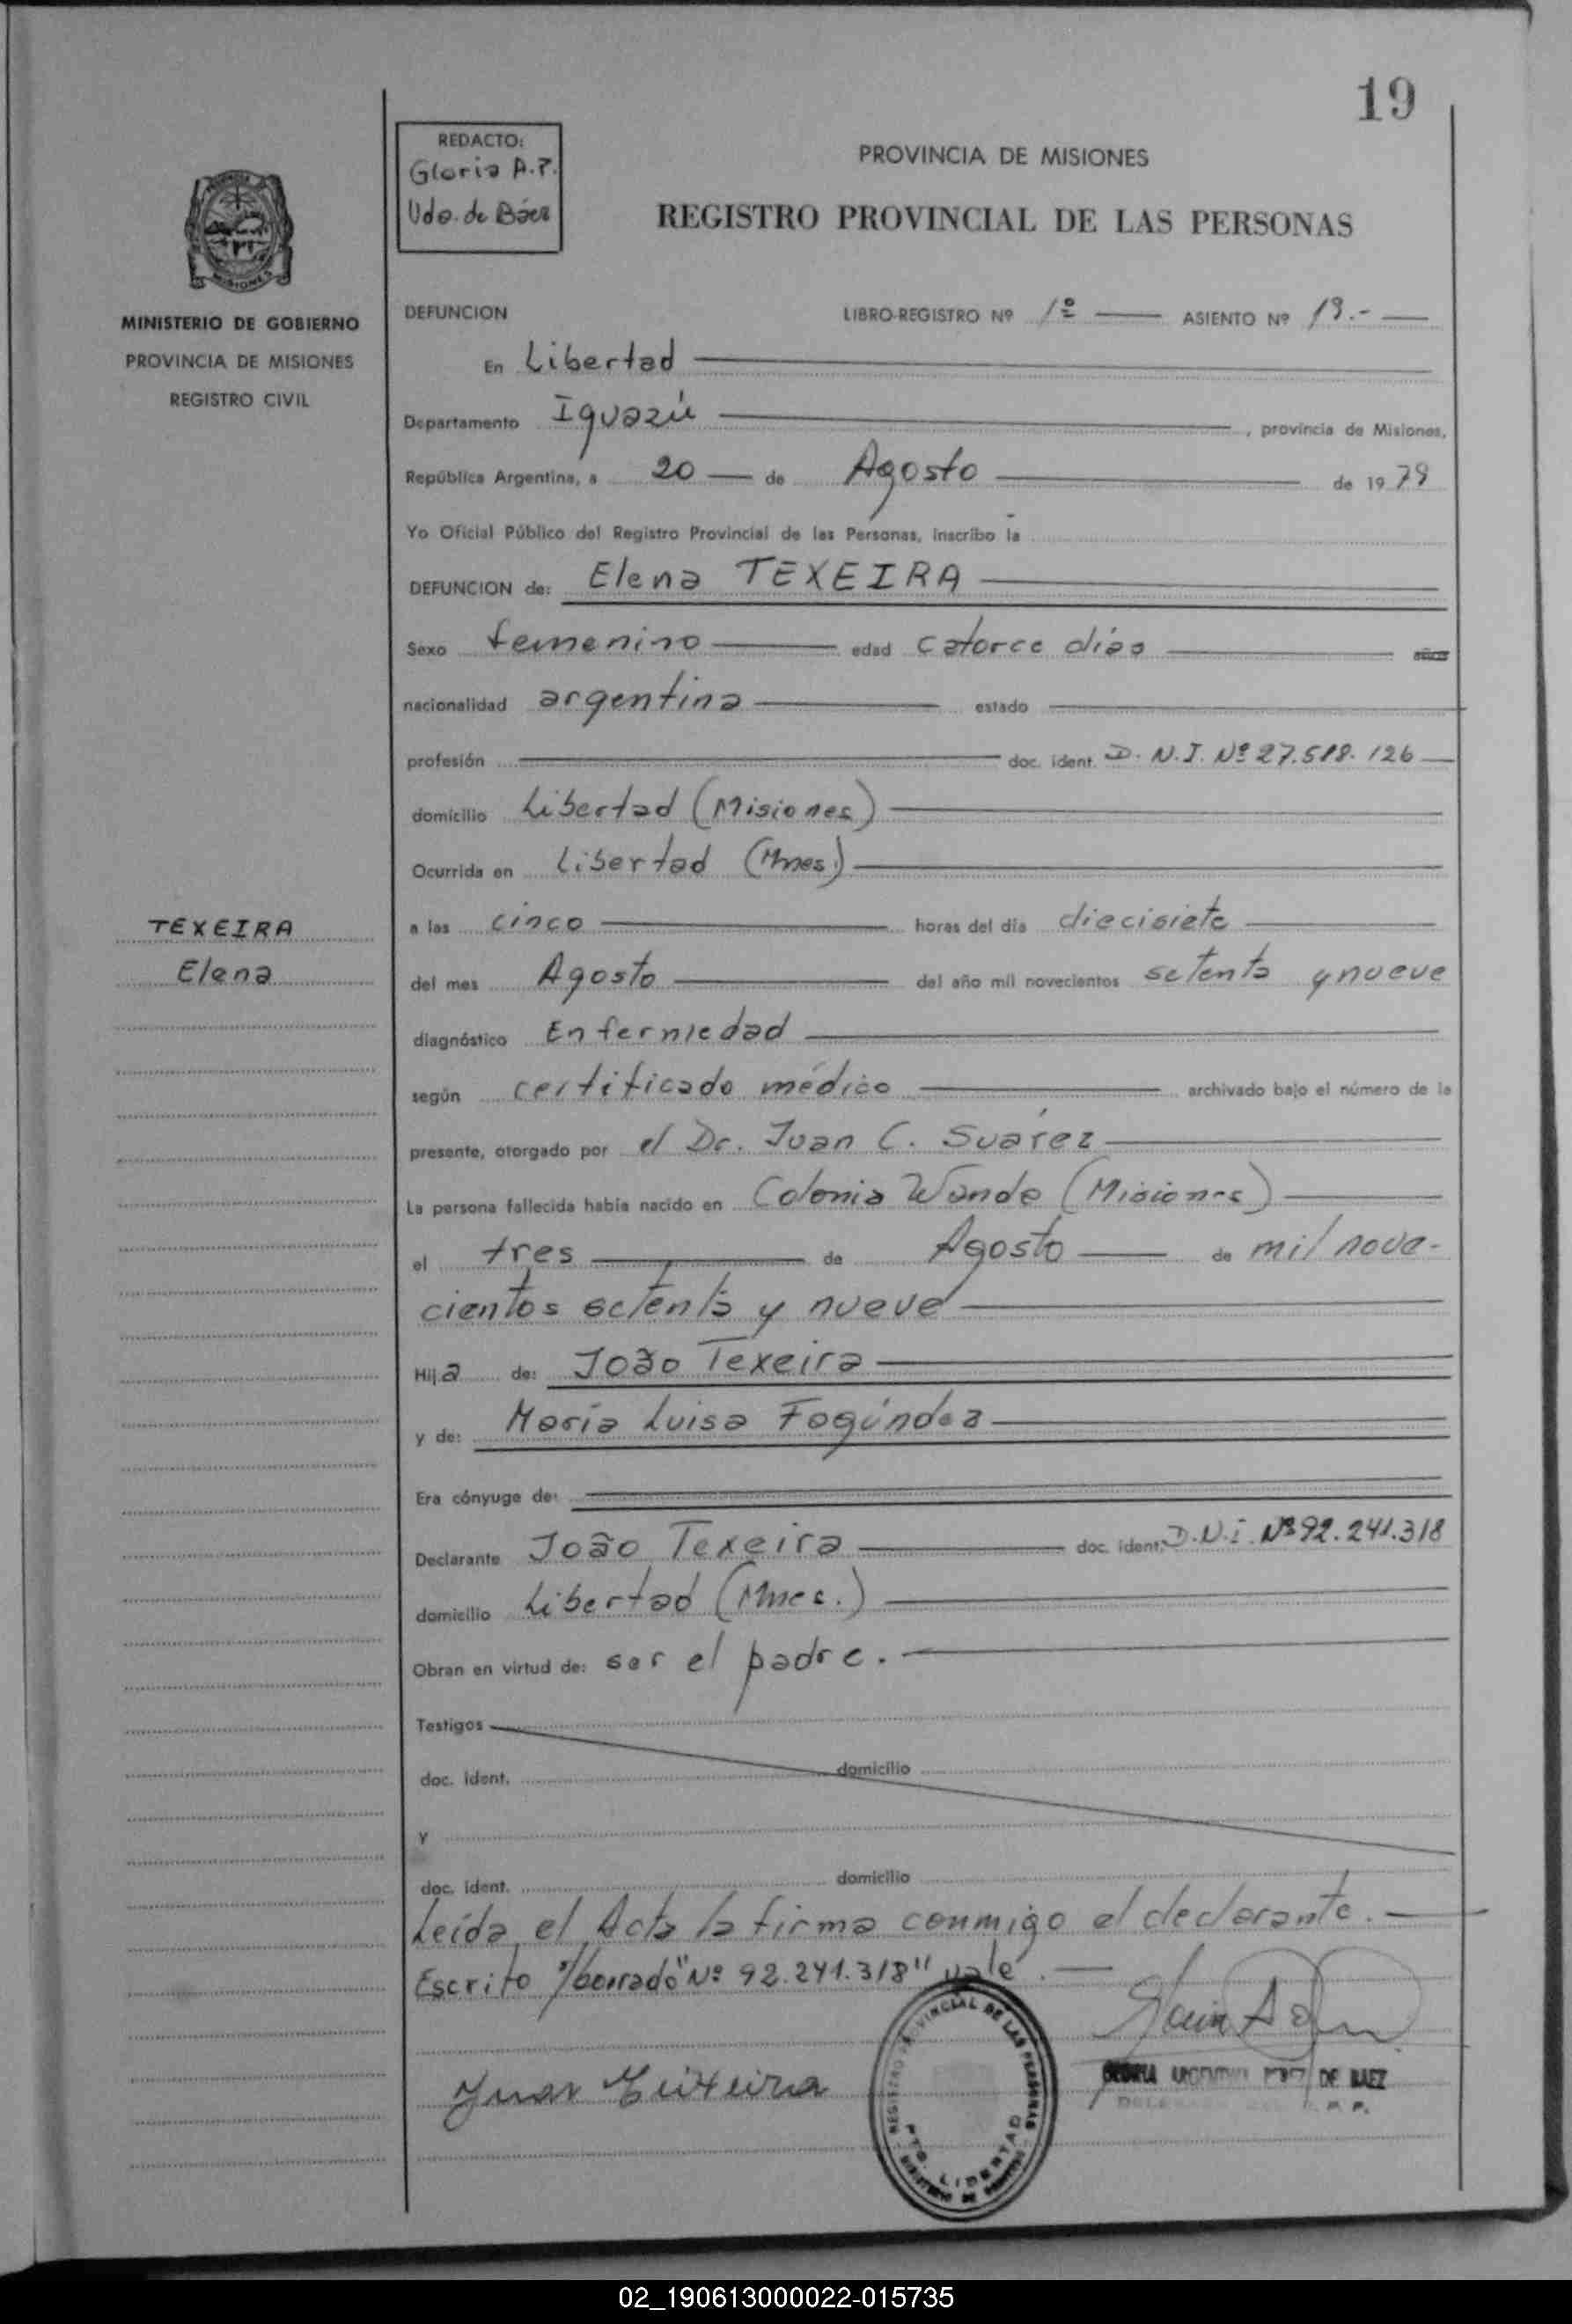 19
REDACTO:
Gloria A. P.
Vda. de Báez
PROVINCIA DE MISIONES
REGISTRO PROVINCIAL DE LAS PERSONAS
MISIONES
MINISTERIO DE GOBIERNO
PROVINCIA DE MISIONES
REGISTRO CIVIL
DEFUNCION LIBRO-REGISTRO Nº 1º ASIENTO Nº 19.-
En Libertad
Departamento Iguazú, provincia de Misiones,
República Argentina, a 20 de Agosto de 1979
Yo Oficial Público del Registro Provincial de las Personas, inscribo la
DEFUNCION de: Elena TEXEIRA
Sexo femenino edad catorce días años
nacionalidad argentina estado
profesión doc. ident. D. N. I. Nº 27.518.126
domicilio Libertad (Misiones)
Ocurrida en Libertad (Mnes.)
TEXEIRA
Elena
a las cinco horas del día diecisiete
del mes Agosto del año mil novecientos setenta y nueve
diagnóstico Enfermedad
según certificado médico archivado bajo el número de la
presente, otorgado por el Dr. Juan C. Suárez
La persona fallecida había nacido en Colonia Wanda (Misiones)
el tres de Agosto de mil nove-
cientos setenta y nueve
Hija de: João Texeira
y de: María Luisa Fagúndez
Era cónyuge de:
Declarante João Texeira doc. ident. D.N.I. Nº 92.241.318
domicilio Libertad (Mnes.)
Obran en virtud de: ser el padre.
Testigos
doc. ident. domicilio
y
doc. ident. domicilio
Leída el Acta la firma conmigo el declarante.
Escrito s/borrado "Nº 92.241.318" vale.
Juan Teixeira
REGISTRO PROVINCIAL DE LAS PERSONAS
PTO. LIBERTAD
DE BAEZ
02_190613000022-015735